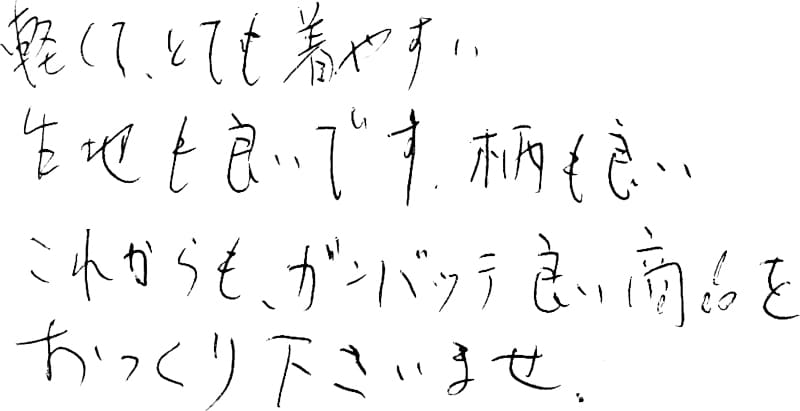 軽くて、とても着やすい
生地も良いです。柄も良い
これからも、ガンバッテ良い商品を
おつくり下さいませ。